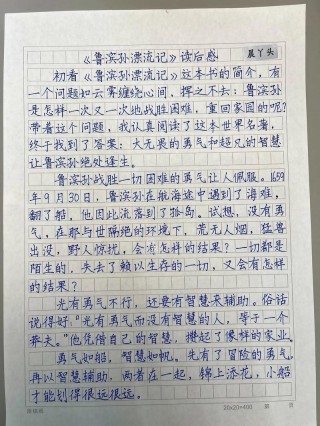 《鲁滨孙漂流记》读后感
晨丫头
初看《鲁滨孙漂流记》这本书的简介，有
一个问题如云雾缠绕心间，挥之不去：鲁滨孙
是怎样一次又一次地战胜困难，重回家园的呢？
带着这个问题，我认真阅读了这本世界名著，
终于找到了答案：大无畏的勇气和超凡的智慧
让鲁滨孙绝处逢生。
鲁滨孙战胜一切困难的勇气让人佩服。1659
年9月30日，鲁滨孙在航海途中遇到了海难，
翻了船，他因此流落到了孤岛。试想，没有勇
气，在那与世隔绝的环境下，荒无人烟，猛兽
出没，野人惊扰，会有怎样的结果？一切都是
陌生的，失去了赖以生存的一切，又会有怎样
的结果？
光有勇气不行，还要有智慧来辅助。俗话
说得好：“光有勇气而没有智慧的人，等于一个
莽夫。”他凭借自己的智慧，攒起了像样的家业。
勇气如船，智慧如帆。先有了冒险的勇气，
再以智慧辅助，两者在一起，锦上添花，小船
才能划得很远很远。
20×20=400
第 页